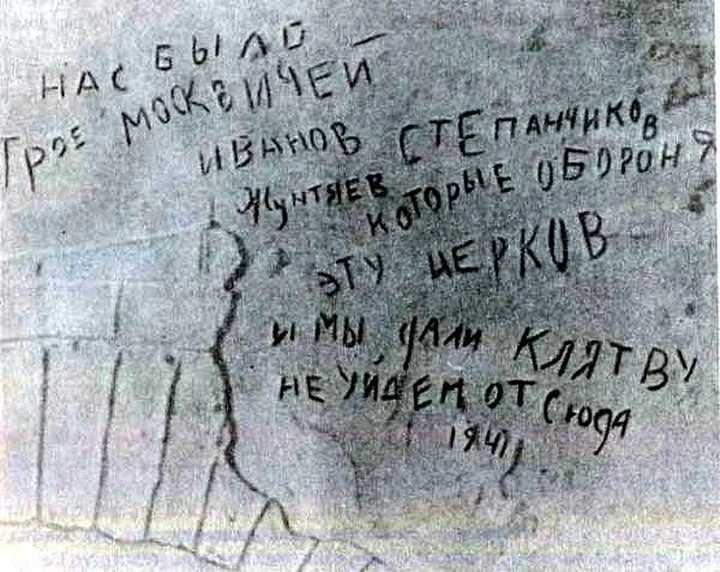 НАС БЫЛО
Трое МОСКВИЧЕЙ —
ИВАНОВ СТЕПАНЧИКОВ
Жунтяев КОТОРЫЕ ОБОРОНЯ
ЭТУ ЦЕРКОВ
И МЫ дАЛИ КЛЯТВУ
НЕ УЙДЕМ ОТ Сюда
1941